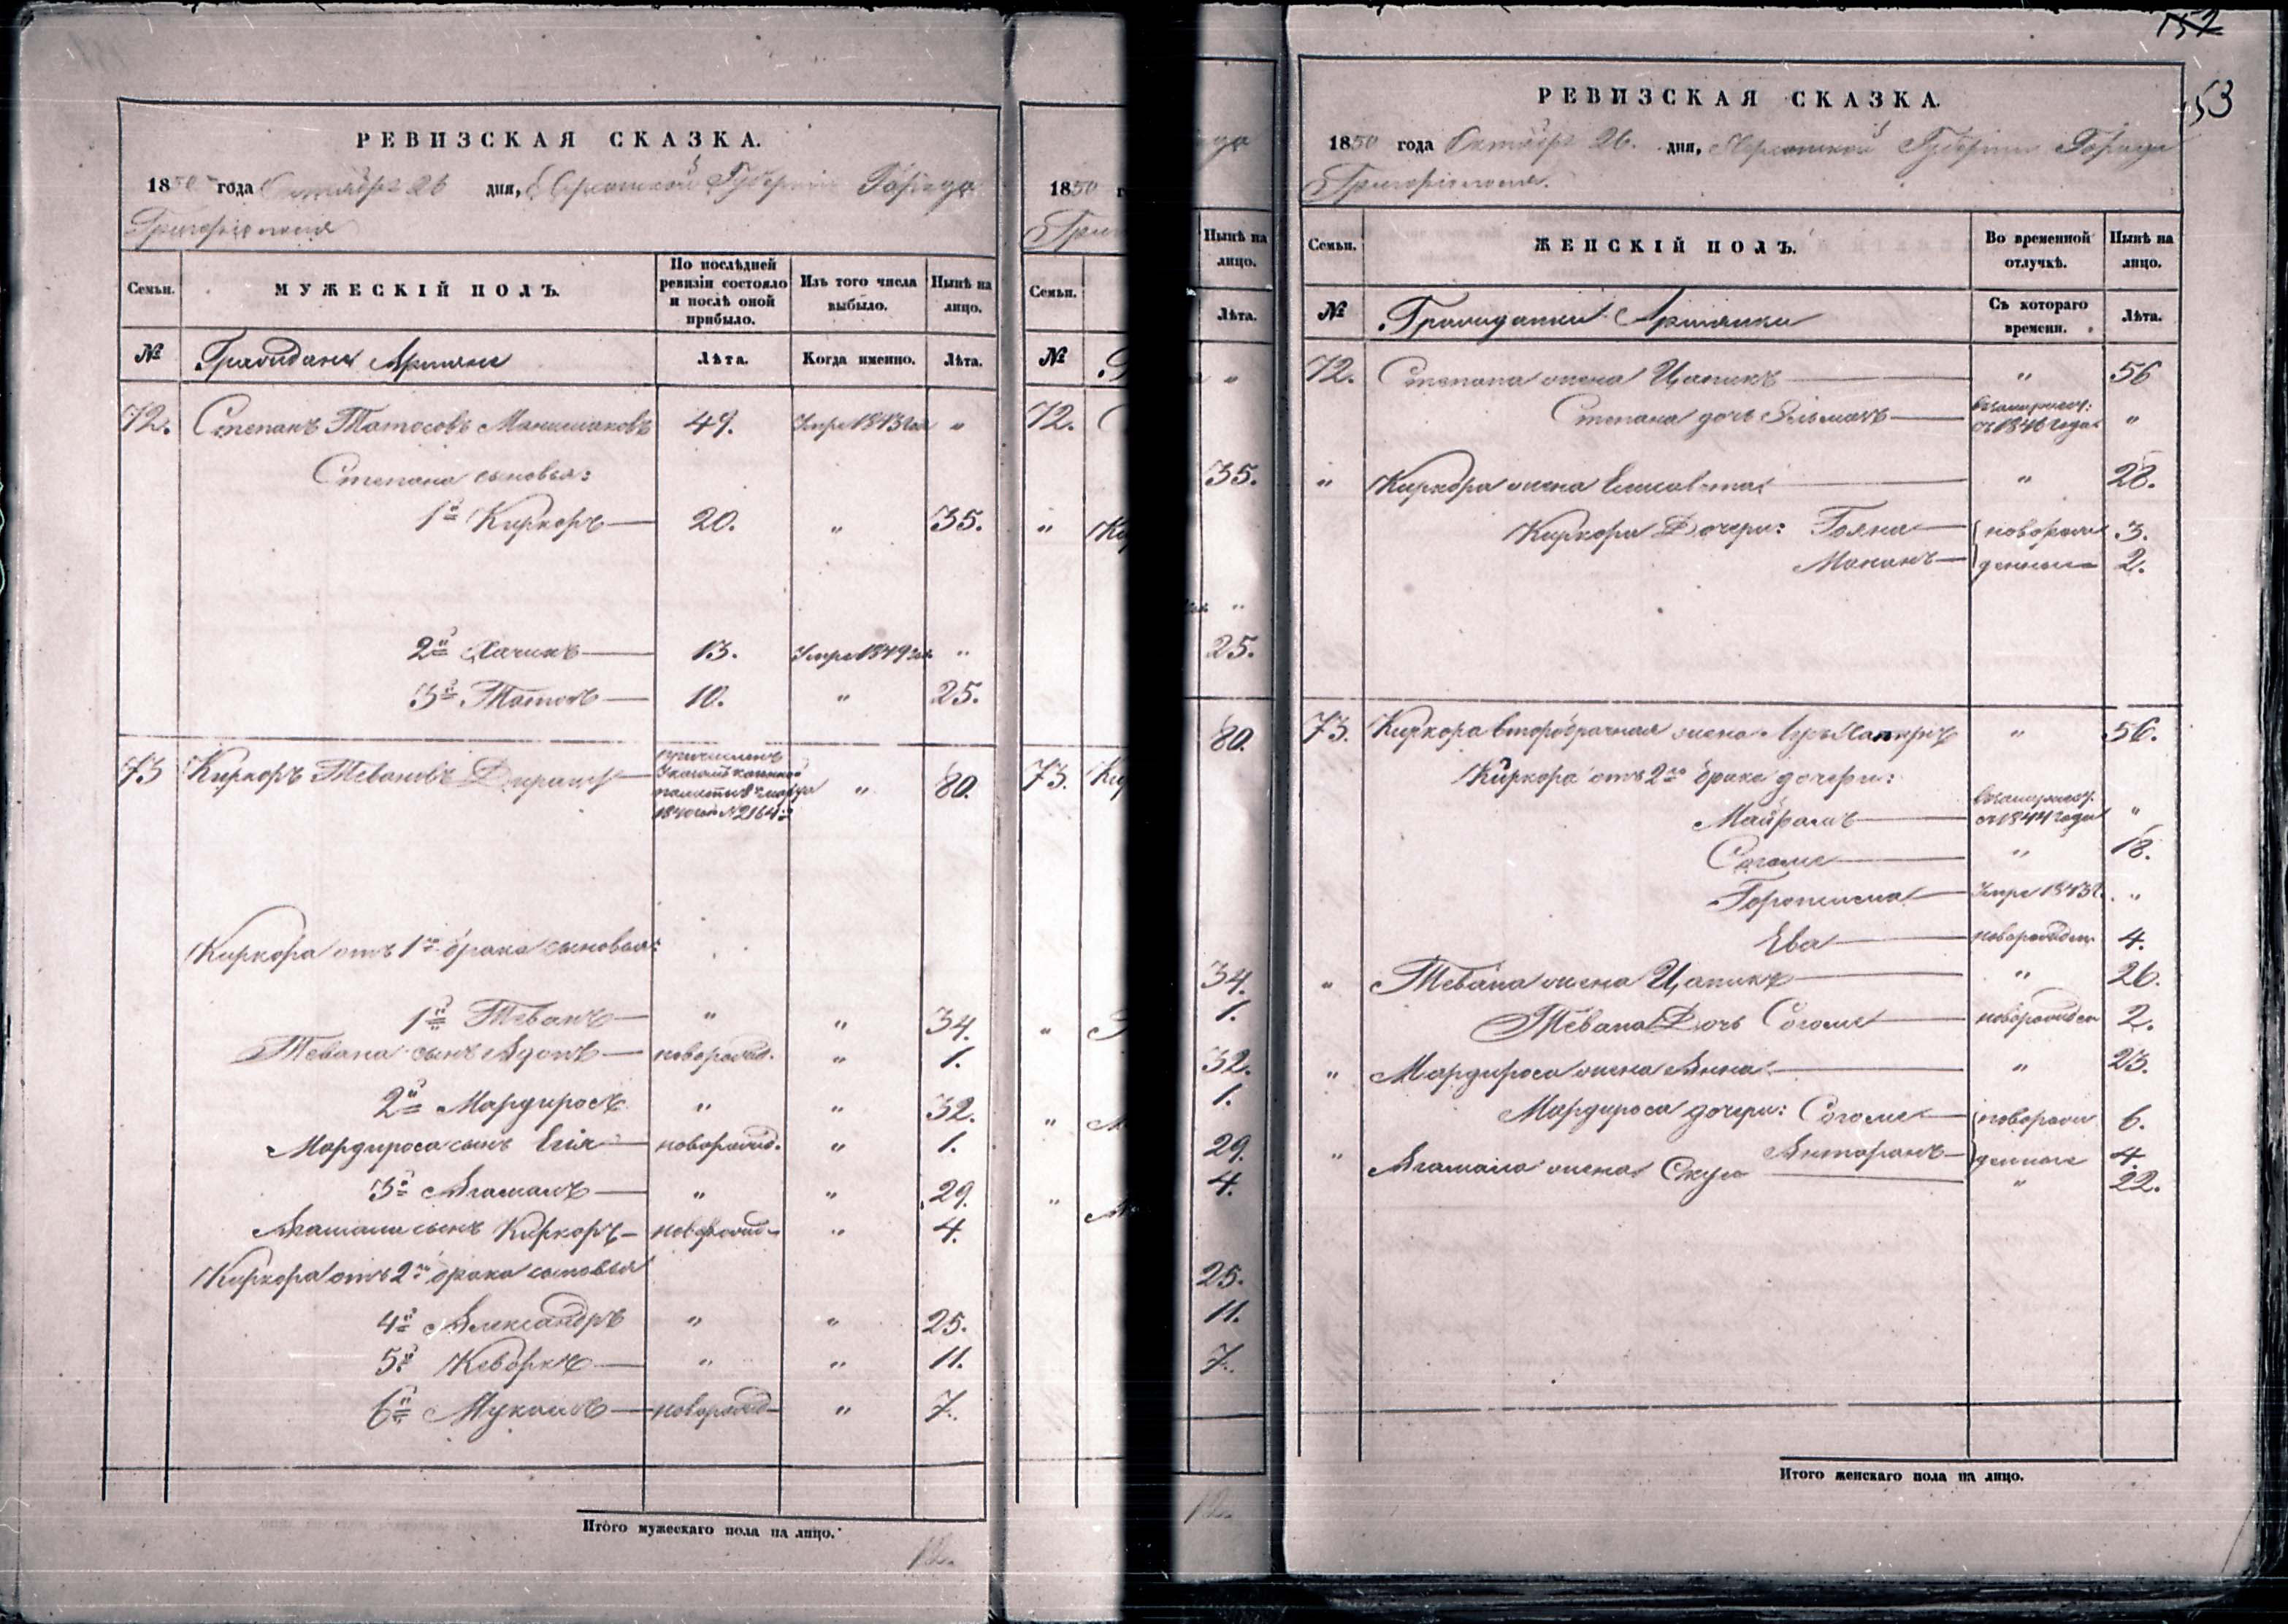 РЕВИЗСКАЯ СКАЗКА.
1850 года Октября 26 дня, Херсонской Губерніи Города
Григоріополя
Семьи. МУЖЕСКІЙ ПОЛЪ. По послѣдней ревизіи состояло и послѣ оной прибыло. Изъ того числа выбыло. Нынѣ на лицо.
№ Граждане Армяне Лѣта. Когда именно. Лѣта.
72. Степанъ Татосовъ 49. Умре 1843 года "
Степана сыновья:
1й Киркоръ 20. " 35.
2й Хачикъ 13. Умре 1849 года "
3й Татосъ 10. " 25.
73 Киркоръ Тевановъ причисленъ Указомъ казенной палаты 1840 года №2164 " 80.
Киркора отъ 1го брака сыновья:
1й Теванъ " " 34.
Тевана сынъ Адамъ новорожд. " 1.
2й Мардиросъ " " 32.
Мардироса сынъ Егія новорожд. " 1.
3й " " 29.
сынъ Киркоръ новорожд. " 4.
Киркора отъ 2го брака сыновья
4й Александръ " " 25.
5й Кеворкъ " " 11.
6й новорожд. " 7.
Итого мужескаго пола на лицо.
12.
1850 г
Григ
Семьи.
№ Г
72. С
" Ки
73. Ки
" Т
" М
да
Нынѣ на лицо.
Лѣта.
"
35.
"
25.
80.
34.
1.
32.
1.
29.
4.
25.
11.
7.
12.
152
53
РЕВИЗСКАЯ СКАЗКА.
1850 года Октября 26. дня, Херсонской Губерніи Города
Григоріополя.
Семьи. ЖЕНСКІЙ ПОЛЪ. Во временной отлучкѣ. Нынѣ на лицо.
№ Гражданки Армянки Съ котораго времени. Лѣта.
72. Степана жена Цагикъ " 56
Степана дочь въ замужест: съ 1846 года "
" Киркора жена Елисавета " 28.
Киркора Дочери: Гояна новорож 3.
Мананъ денныя 2.
73. Киркора второбрачная жена " 56.
Киркора отъ 2го брака дочери:
Майрамъ въ замужест. съ 1844 года "
Согоме " 18.
Умре 1843 г. "
Ева новорожден. 4.
" Тевана жена Цагикъ " 26.
Тевана Дочь Согоме новорожден 2.
" Мардироса жена Анна " 23.
Мардироса дочери: Согоме новорож 6.
Антарамъ денныя 4.
" жена " 22.
Итого женскаго пола на лицо.